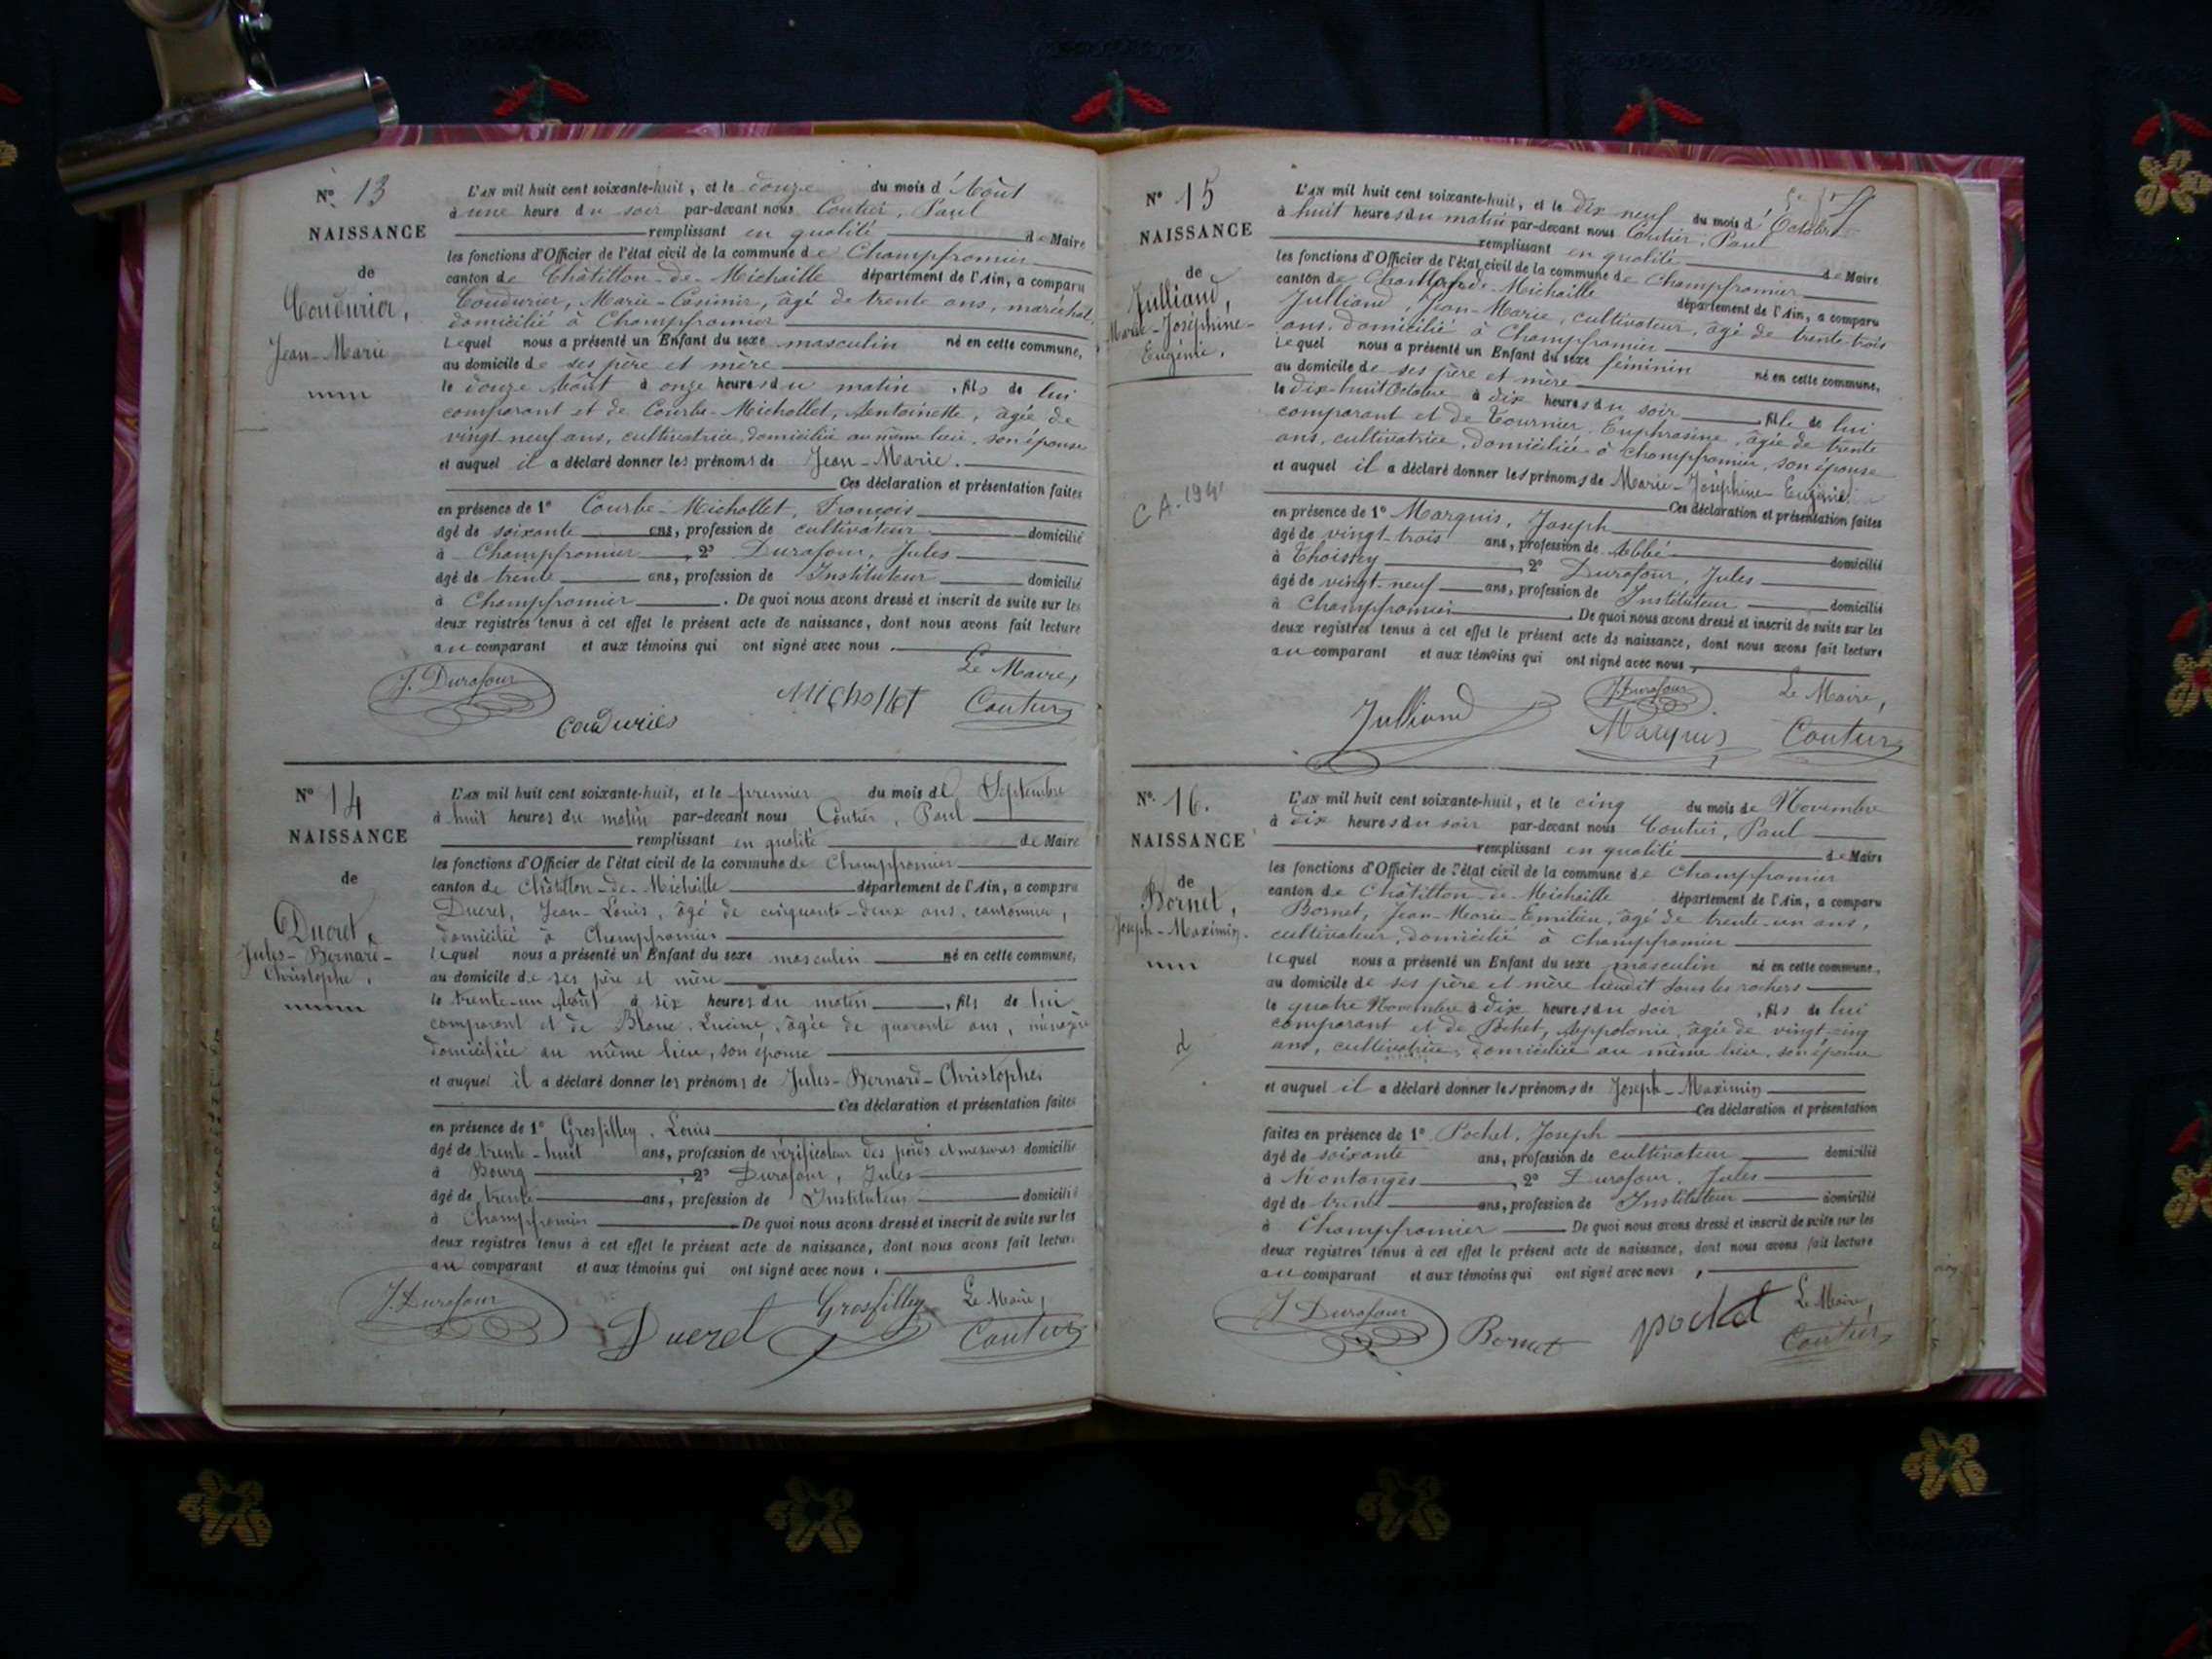 N° 13
NAISSANCE
de
Coudurier,
Jean-Marie
L'AN mil huit cent soixante-huit, et le douze du mois d'Août
à une heure du soir par-devant nous Coutier, Paul
remplissant en qualité de Maire
les fonctions d'Officier de l'état civil de la commune de Champfromier
canton de Châtillon-de-Michaille département de l'Ain, a comparu
Coudurier, Marie-Casimir, âgé de trente ans, maréchal,
domicilié à Champfromier
Lequel nous a présenté un Enfant du sexe masculin né en cette commune,
au domicile de ses père et mère
le douze Août à onze heures du matin, fils de lui
comparant et de Courbe-Michollet, Antoinette, âgée de
vingt-neuf ans, cultivatrice, domiciliée au même lieu, son épouse
et auquel il a déclaré donner les prénoms de Jean-Marie.
Ces déclaration et présentation faites
en présence de 1° Courbe-Michollet, François
âgé de soixante ans, profession de cultivateur domicilié
à Champfromier, 2° Durafour, Jules
âgé de trente ans, profession de Instituteur domicilié
à Champfromier. De quoi nous avons dressé et inscrit de suite sur les
deux registres tenus à cet effet le présent acte de naissance, dont nous avons fait lecture
au comparant et aux témoins qui ont signé avec nous.
J. Durafour
Couduriés
Michollet
Le Maire,
Coutier
N° 14
NAISSANCE
de
Ducret,
Jules-Bernard-
Christophe,
L'AN mil huit cent soixante-huit, et le premier du mois de Septembre
à huit heures du matin par-devant nous Coutier, Paul
remplissant en qualité de Maire
les fonctions d'Officier de l'état civil de la commune de Champfromier
canton de Châtillon-de-Michaille département de l'Ain, a comparu
Ducret, Jean-Louis, âgé de cinquante-deux ans, cantonnier,
domicilié à Champfromier
lequel nous a présenté un Enfant du sexe masculin né en cette commune,
au domicile de ses père et mère
le trente-un Août à six heures du matin, fils de lui
comparant et de Blanc, Lucine, âgée de quarante ans, ménagère
domiciliée au même lieu, son épouse
et auquel il a déclaré donner les prénoms de Jules-Bernard-Christophe.
Ces déclaration et présentation faites
en présence de 1° Grosfilley, Louis
âgé de trente-huit ans, profession de vérificateur des poids et mesures domicilié
à Bourg, 2° Durafour, Jules
âgé de trente ans, profession de Instituteur domicilié
à Champfromier De quoi nous avons dressé et inscrit de suite sur les
deux registres tenus à cet effet le présent acte de naissance, dont nous avons fait lecture
au comparant et aux témoins qui ont signé avec nous.
J. Durafour
Ducret
Grosfilley
Le Maire,
Coutier
N° 15
NAISSANCE
de
Julliand,
Marie-Joséphine-
Eugénie,
L'AN mil huit cent soixante-huit, et le dix neuf du mois d'Octobre
à huit heures du matin par-devant nous Coutier, Paul
remplissant en qualité de Maire
les fonctions d'Officier de l'état civil de la commune de Champfromier
canton de Châtillon-de-Michaille département de l'Ain, a comparu
Julliand, Jean-Marie, cultivateur, âgé de trente-trois
ans, domicilié à Champfromier
Lequel nous a présenté un Enfant du sexe féminin né en cette commune,
au domicile de ses père et mère
le dix-huit Octobre à dix heures du soir, fille de lui
comparant et de Tournier, Euphrasine, âgée de trente
ans, cultivatrice, domiciliée à Champfromier, son épouse
et auquel il a déclaré donner les prénoms de Marie-Joséphine-Eugénie.
Ces déclaration et présentation faites
en présence de 1° Marquis, Joseph
âgé de vingt-trois ans, profession de Abbé domicilié
à Thoissey, 2° Durafour, Jules
âgé de vingt-neuf ans, profession de Instituteur domicilié
à Champfromier. De quoi nous avons dressé et inscrit de suite sur les
deux registres tenus à cet effet le présent acte de naissance, dont nous avons fait lecture
au comparant et aux témoins qui ont signé avec nous,
Julliand
J. Durafour
Marquis
Le Maire,
Coutier
N° 16.
NAISSANCE
de
Bornet,
Joseph-Maximin.
L'AN mil huit cent soixante-huit, et le cinq du mois de Novembre
à dix heures du soir par-devant nous Coutier, Paul
remplissant en qualité de Maire
les fonctions d'Officier de l'état civil de la commune de Champfromier
canton de Châtillon-de-Michaille département de l'Ain, a comparu
Bornet, Jean-Marie-Emilien, âgé de trente-un ans,
cultivateur, domicilié à Champfromier
lequel nous a présenté un Enfant du sexe masculin né en cette commune,
au domicile de ses père et mère lieudit sous les rochers
le quatre Novembre à dix heures du soir, fils de lui
comparant et de Pochet, Appolonie, âgée de vingt-cinq
ans, cultivatrice, domiciliée au même lieu, son épouse
et auquel il a déclaré donner les prénoms de Joseph-Maximin
Ces déclaration et présentation
faites en présence de 1° Pochet, Joseph
âgé de soixante ans, profession de cultivateur domicilié
à Montanges, 2° Durafour, Jules
âgé de trente ans, profession de Instituteur domicilié
à Champfromier De quoi nous avons dressé et inscrit de suite sur les
deux registres tenus à cet effet le présent acte de naissance, dont nous avons fait lecture
au comparant et aux témoins qui ont signé avec nous,
J. Durafour
Bornet
pochet
Le Maire,
Coutier